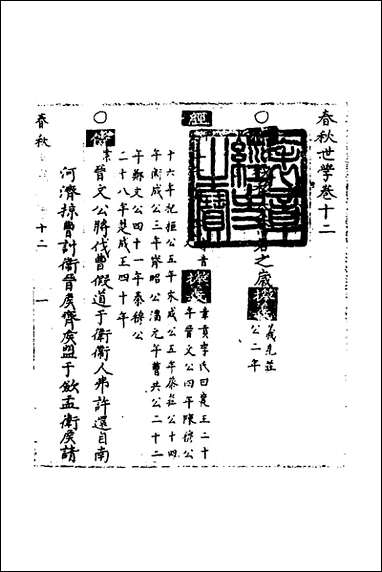 春秋世學卷十二
○
之歲攄義義見莊
公二年
經
攄義章貢李氏曰襄王二十
年晉文公四年陳穆公
十六年杞桓公五年宋成公五年蔡莊公十四
年衛成公三年齊昭公潘元年曹共公二十二
年鄭文公四十一年秦穆公
二十八年楚成王四十年
○傳晉文公將伐曹假道于衛衛人弗許還自南
河濟掠曹討衛晉矦齊矦盟于歛盂衛矦請
春秋 十二 一